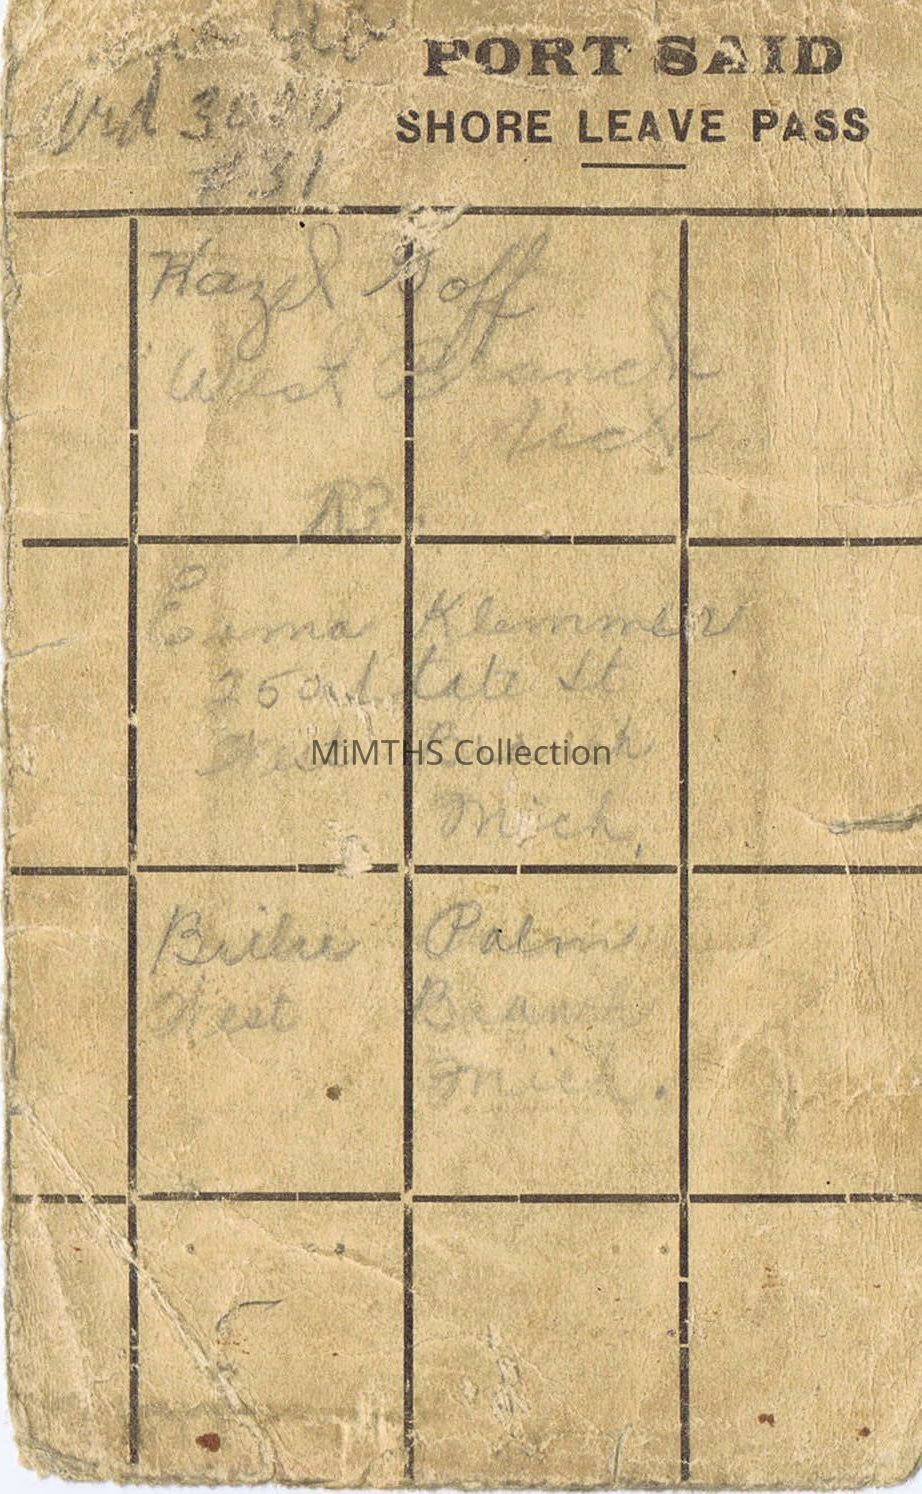 PORT SAID
SHORE LEAVE PASS
#31
Hazel Goff
West Branch
Mich
R3.
Emma Klemmer
250 State St
West Branch
Mich,
Billie Palm
West Branch
Mich.
MiMTHS Collection